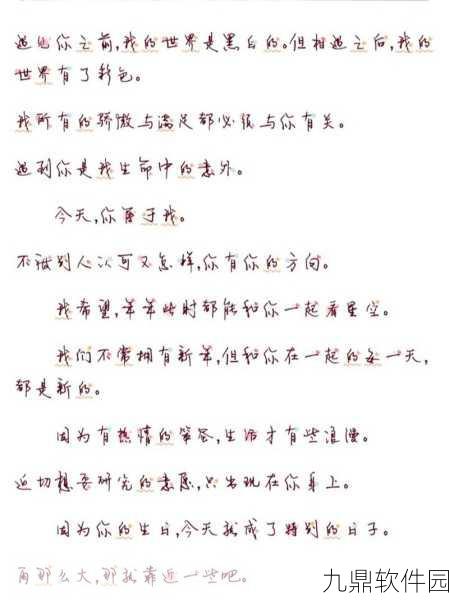 遇见你之前,我的世界是黑白的。但相遇之后,我的
世界有了彩色。
我所有的骄傲与满足都必须与你有关。
遇到你是我生命中的意外。
今天,你属于我。
不被别人认可又怎样,你有你的方向。
我希望,年年此时都能和你一起看星空。
我们不常拥有新年,但和你在一起的每一天,
都是新的。
因为有热情的笨备,生活才有些浪漫。
迫切想要研究的意愿,只出现在你身上。
因为你的生日,今天就成了特别的日子。
雨那么大,那就靠近一些吧。
九鼎软件园